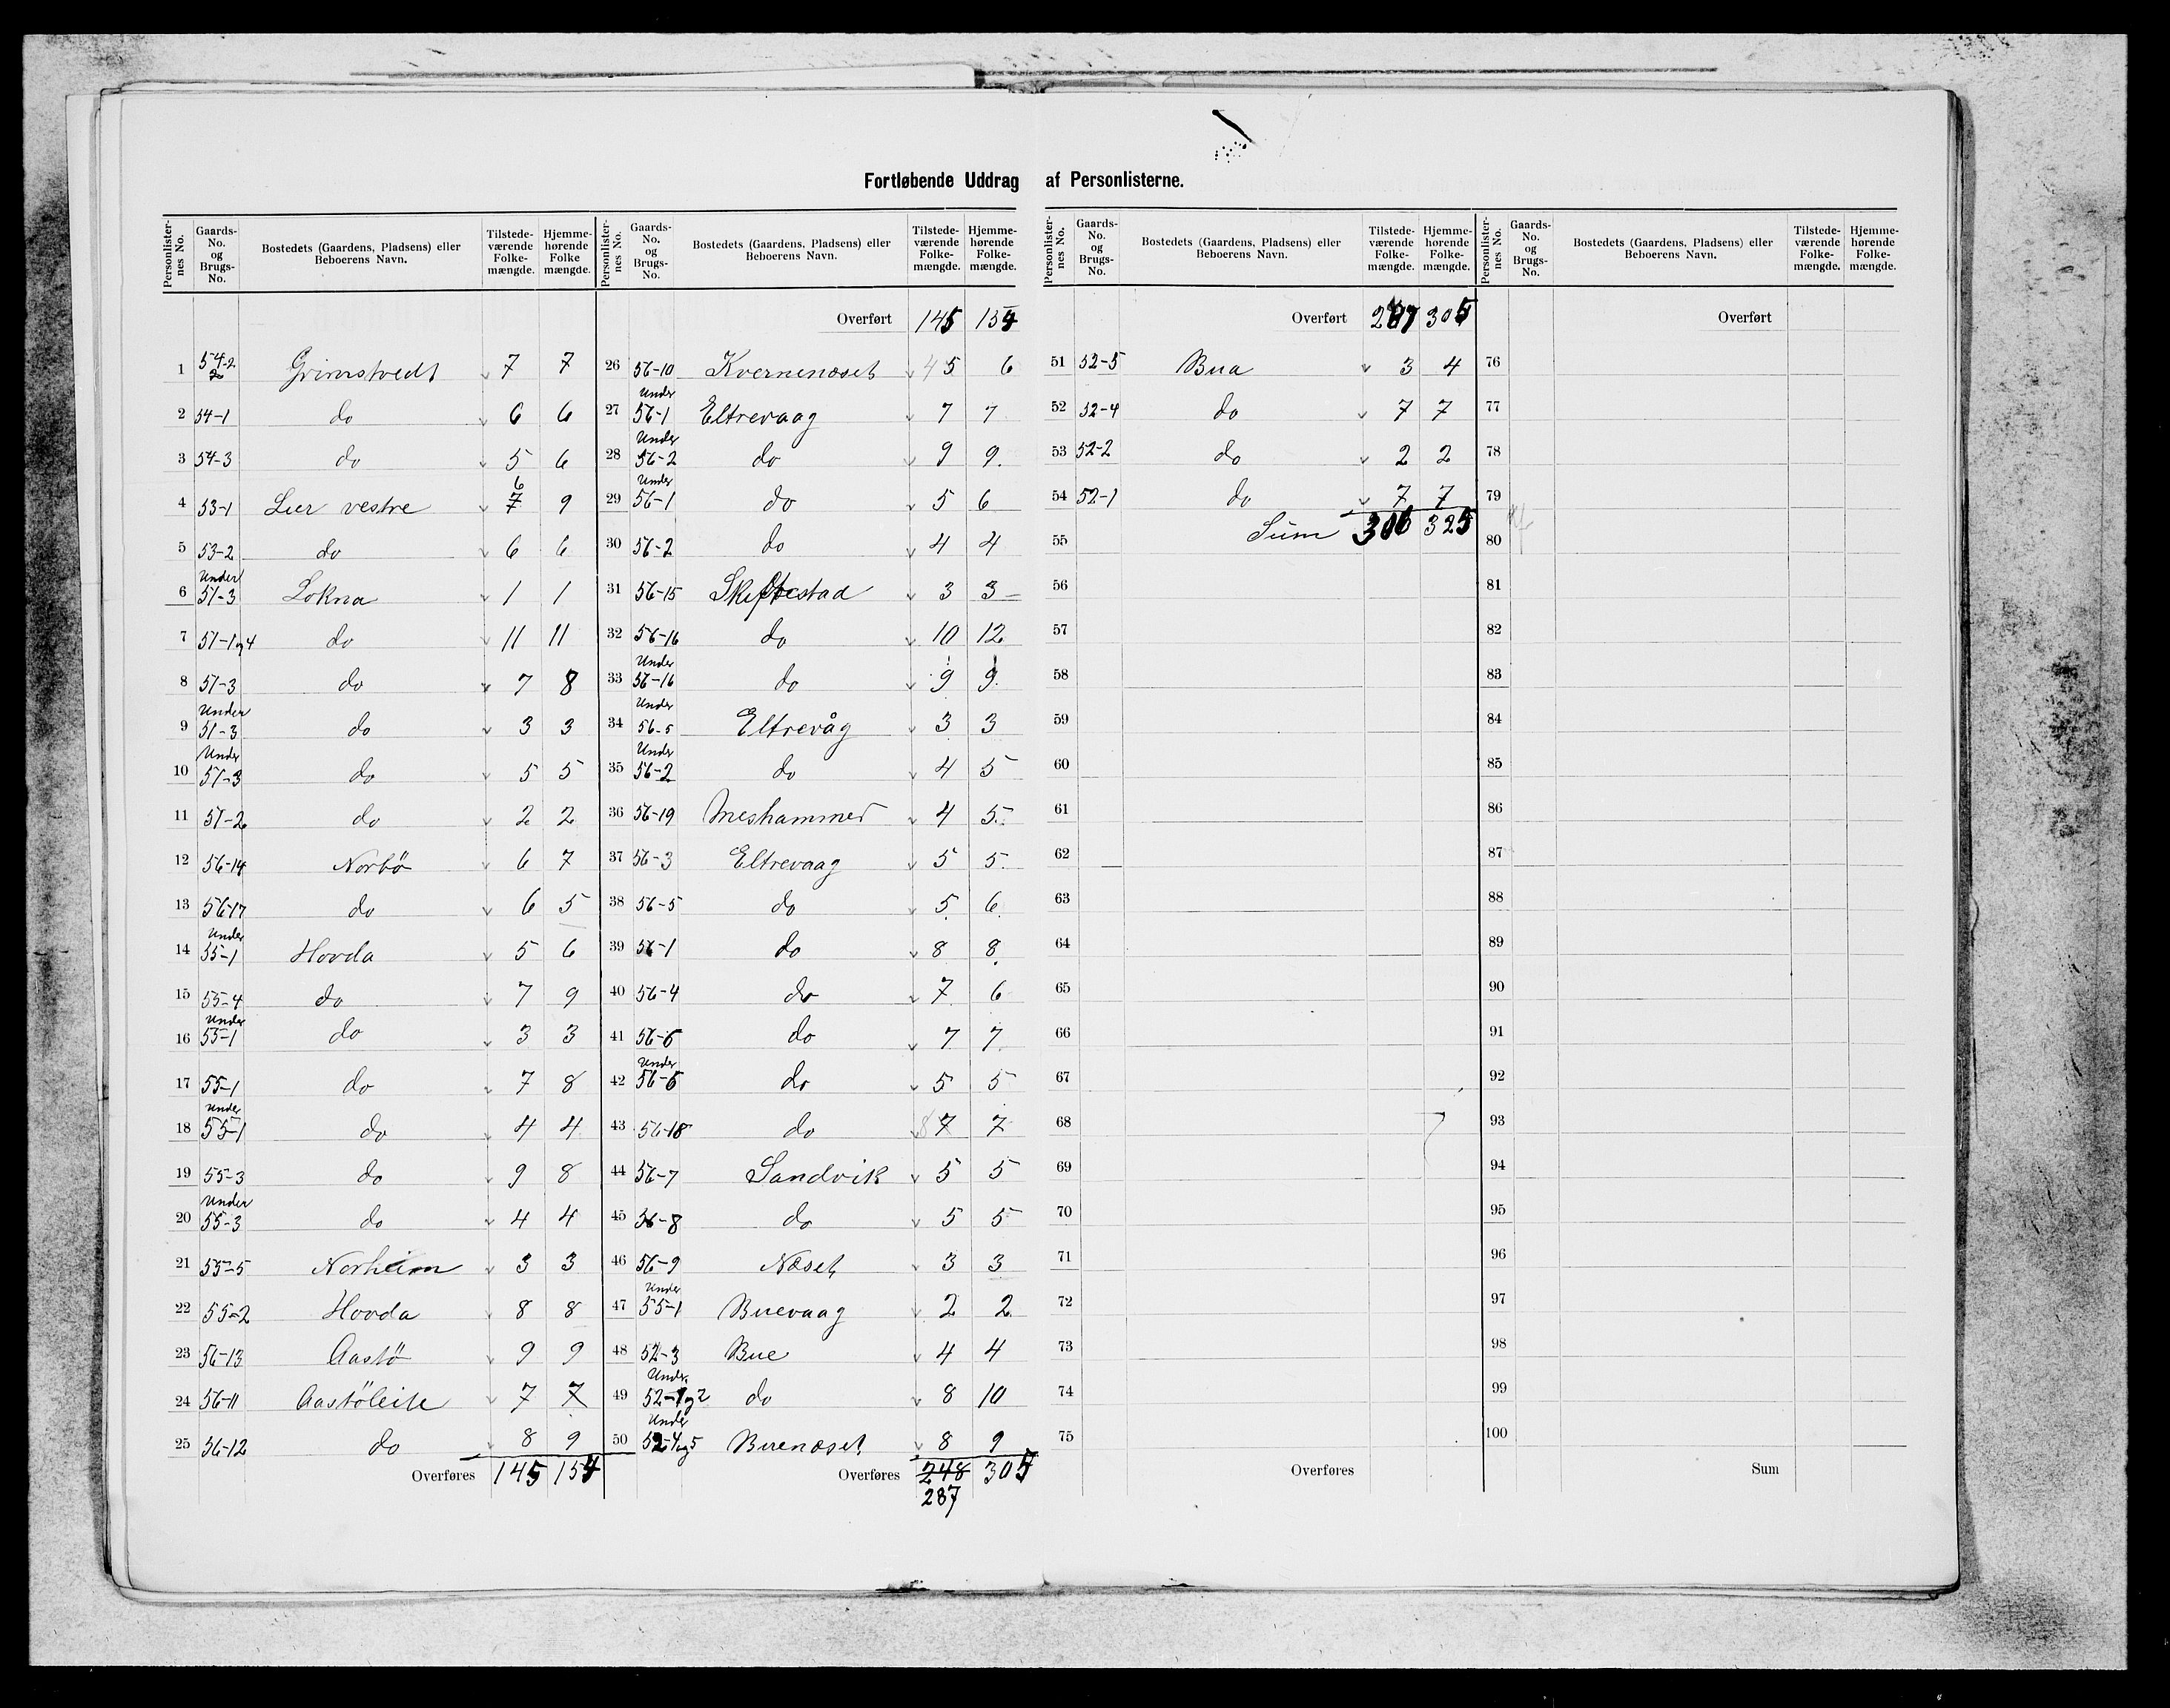 Fortløbende Uddrag af Personlisterne.
Personlister-nes No. Gaards-No. og Brugs-No. Bostedets (Gaardens, Pladsens) eller Beboerens Navn. Tilstede-værende Folke-mængde. Hjemme-hørende Folke mængde.
1 54-2 Grimstvedt 7 7
2 54-1 do 6 6
3 54-3 do 5 6
4 53-1 Lier vestre 6 7 9
5 53-2 do 6 6
6 Under 51-3 Lokna 1 1
7 51-1og4 do 11 11
8 51-3 do 7 8
9 Under 51-3 do 3 3
10 Under 51-3 do 5 5
11 51-2 do 2 2
12 56-14 Norbö 6 7
13 56-17 do 6 5
14 Under 55-1 Hovda 5 6
15 55-4 do 7 9
16 Under 55-1 do 3 3
17 55-1 do 7 8
18 Under 55-1 do 4 4
19 55-3 do 9 8
20 Under 55-3 do 4 4
21 55-5 Norheim 3 3
22 55-2 Hovda 8 8
23 56-13 Aastö 9 9
24 56-11 Aastöleite 7 7
25 56-12 do 8 9
Overføres 145 154
Personlister-nes No. Gaards-No. og Brugs-No. Bostedets (Gaardens, Pladsens) eller Beboerens Navn. Tilstede-værende Folke-mængde. Hjemme-hørende Folke-mængde.
Overført 145 154
26 56-10 Kvernenæset 4 5 6
27 Under 56-1 Eltrevaag 7 7
28 Under 56-2 do 9 9.
29 Under 56-1 do 5 6
30 56-2 do 4 4
31 56-15 Skiftestad 3 3
32 56-16 do 10 12
33 Under 56-16 do 9 9
34 Under 56-5 Eltrevåg 3 3
35 Under 56-2 do 4 5
36 56-19 Meshammer 4 5.
37 56-3 Eltrevaag 5 5.
38 56-5 do 5 6.
39 56-1 do 8 8.
40 56-4 do 7 6
41 56-6 do 7 7.
42 Under 56-6 do 5 5
43 56-18 do 8 7 7
44 56-7 Sandvik 5 5
45 56-8 do 5 5
46 56-9 Næset 3 3
47 Under 55-1 Buevaag 2 2
48 52-3 Bue 4 4
49 Under 52-1og2 do 8 10
50 Under 52-4og5 Buenæset 8 9
Overføres 248 305
287
Personlister-nes No. Gaards-No. og Brugs-No. Bostedets (Gaardens, Pladsens) eller Beboerens Navn. Tilstede-værende Folke-mængde. Hjemme-hørende Folke-mængde.
Overført 287 305
51 52-5 Bua 3 4
52 52-4 do 7 7
53 52-2 do 2 2
54 52-1 do 7 7
55 Sum 306 325
56
57
58
59
60
61
62
63
64
65
66
67
68
69
70
71
72
73
74
75
Overføres
Personlister-nes No. Gaards-No. og Brugs-No. Bostedets (Gaardens, Pladsens) eller Beboerens Navn. Tilstede-værende Folke-mængde. Hjemme-hørende Folke-mængde.
Overført
76
77
78
79
80
81
82
83
84
85
86
87
88
89
90
91
92
93
94
95
96
97
98
99
100
Sum